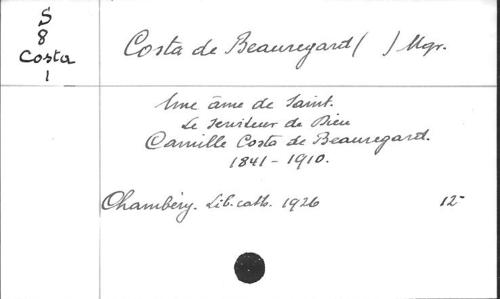 S
8
Costa
1
Costa de Beauregard ( ) Mgr.
Une âme de Saint.
Le Serviteur de Dieu
Camille Costa de Beauregard.
1841-1910.
Chambéry. Lib. cath. 1926 12-